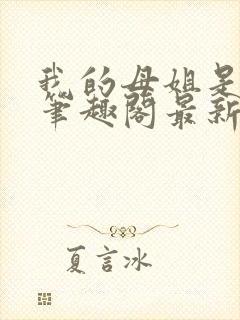 我的母姐是
笔趣阁最新
夏言冰